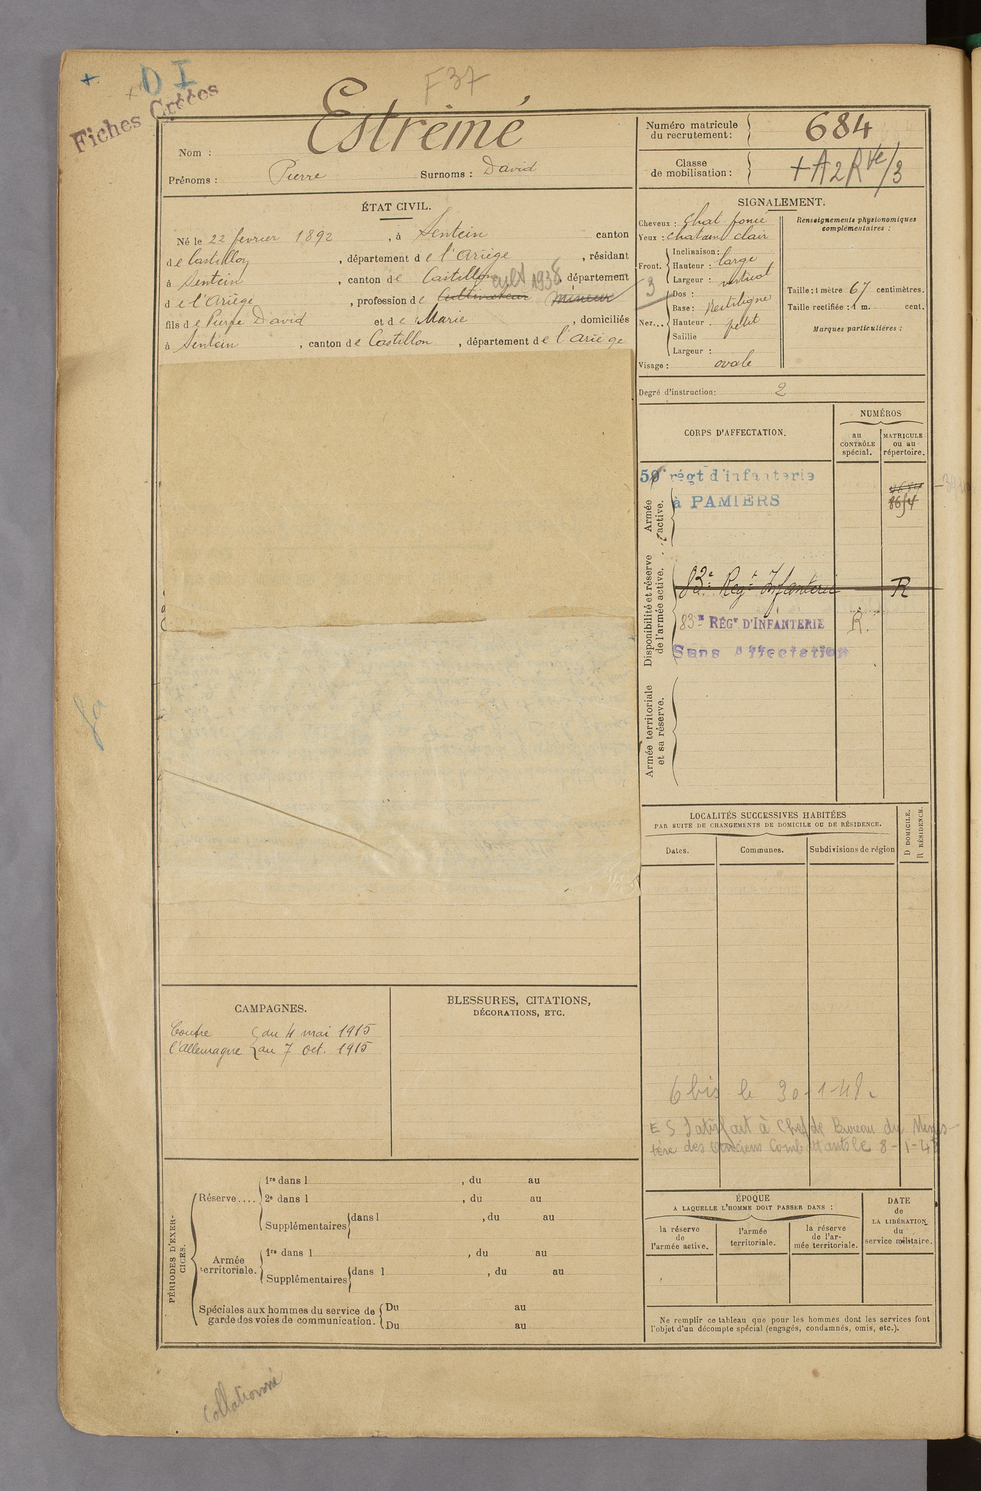 + D I
Fiches Créées
F 37
Nom : Estreimé
Prénoms : Pierre Surnoms : David
Numéro matricule du recrutement : 684
Classe de mobilisation : + A 2 R Ve/3
ÉTAT CIVIL.
Né le 22 février 1892, à Sentein canton
de Castillon, département de l'Ariège, résidant
à Sentein, canton de Castillon, département
cult 1938
de l'Ariège, profession de Cultivateur mineur
fils de Pierre David et de Marie, domiciliés
à Sentein, canton de Castillon, département de l'Ariège
SIGNALEMENT.
Cheveux : chat foncé
Yeux : chatains clair
Front. Inclinaison :
Hauteur : large
Largeur : vertical
3
Nez... Dos :
Base : Rectiligne
Hauteur : petit
Saillie
Largeur :
Visage : ovale
Renseignements physionomiques complémentaires :
Taille : 1 mètre 67 centimètres.
Taille rectifiée : 1 m. cent.
Marques particulières :
Degré d'instruction : 2
CORPS D'AFFECTATION.
NUMÉROS
au CONTRÔLE spécial.
MATRICULE ou au répertoire.
Armée active.
59e régt d'infanterie
à PAMIERS
8654
Disponibilité et réserve de l'armée active.
83e Regt Infanterie R
83e RÉGt D'INFANTERIE R.
Sans affectation
Armée territoriale et sa réserve.
LOCALITÉS SUCCESSIVES HABITÉES
PAR SUITE DE CHANGEMENTS DE DOMICILE OU DE RÉSIDENCE.
Dates.
Communes.
Subdivisions de région
D DOMICILE.
R RÉSIDENCE.
6 bis le 30-1-48.
E S Satisfait à Chef de Bureau du Minis-
tère des Anciens Combattants le 8-1-48
CAMPAGNES.
Contre { du 4 mai 1915
l'Allemagne { au 7 oct. 1915
BLESSURES, CITATIONS,
DÉCORATIONS, ETC.
PÉRIODES D'EXERCICES.
Réserve....
1re dans l , du au
2e dans l , du au
Supplémentaires { dans l , du au
Armée territoriale.
1re dans l , du au
Supplémentaires { dans l , du au
Spéciales aux hommes du service de garde des voies de communication.
Du au
Du au
ÉPOQUE
A LAQUELLE L'HOMME DOIT PASSER DANS :
la réserve de l'armée active.
l'armée territoriale.
la réserve de l'armée territoriale.
DATE de LA LIBÉRATION du service militaire.
Ne remplir ce tableau que pour les hommes dont les services font
l'objet d'un décompte spécial (engagés, condamnés, omis, etc.).
Collationné